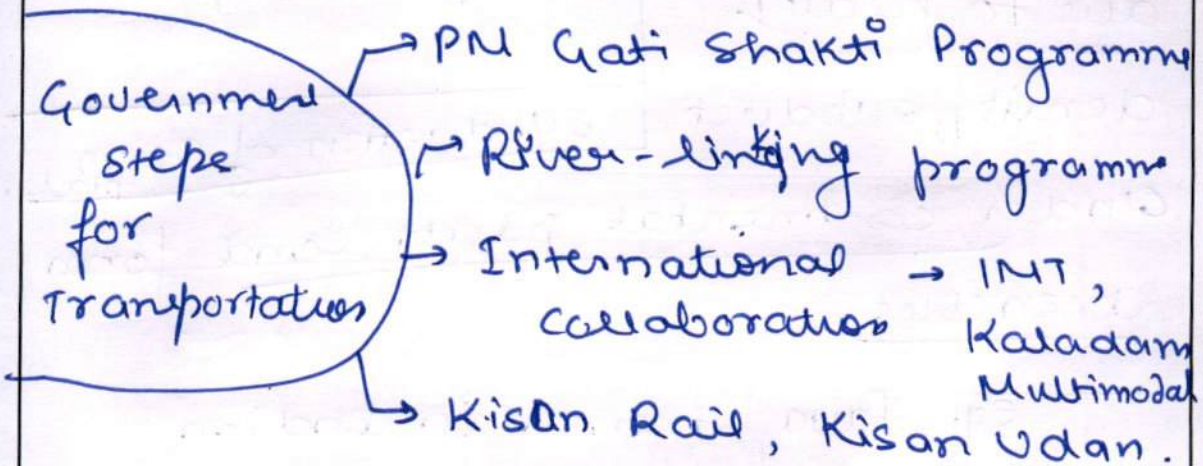 Government
steps
for
Transportation
→ PM Gati Shakti Programme
→ River-linking programm
→ International → IMT,
collaboration Kaladam
Multimodal
→ Kisan Rail, Kisan Udan.